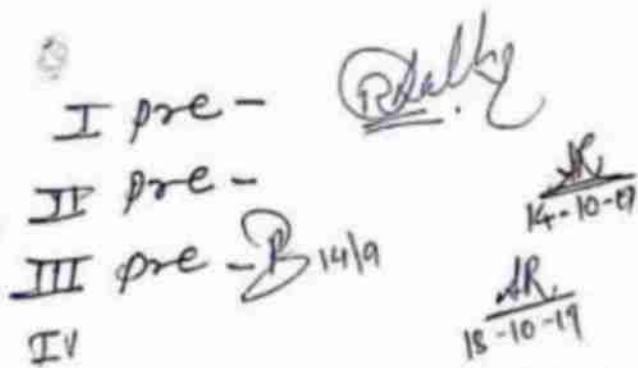 I pre -
II pre -
14-10-19
III pre - B 14/9
AR.
18-10-19
IV